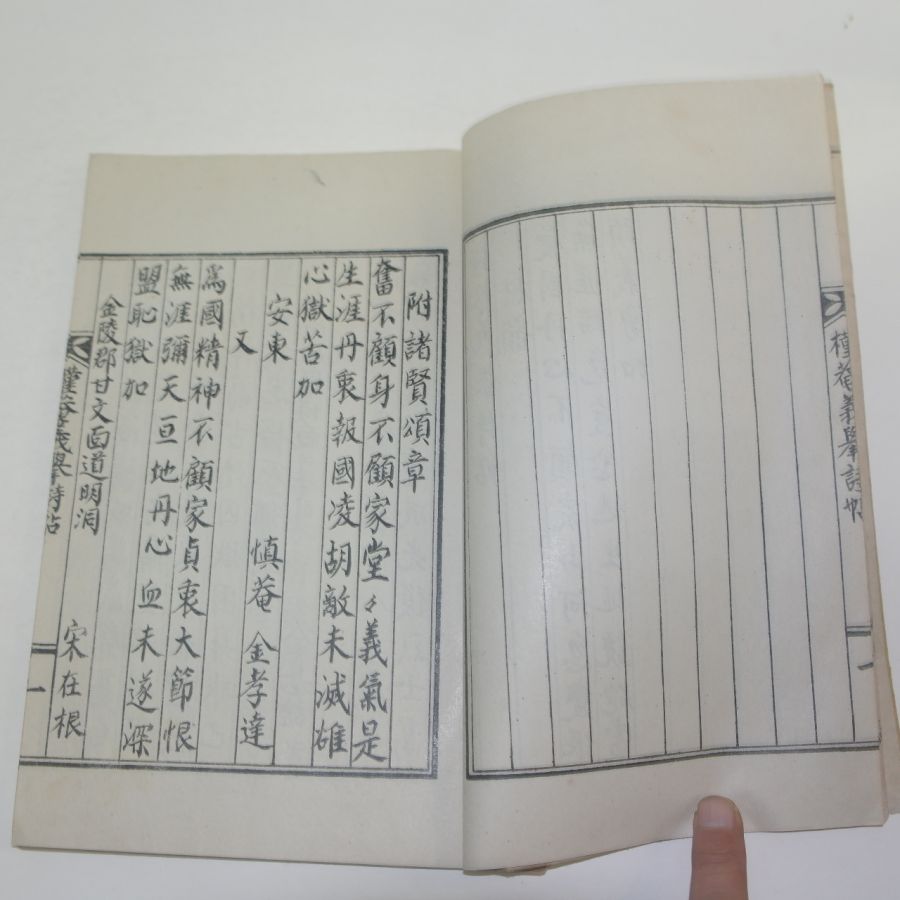 檀菴義擧詩帖
一
附諸賢頌章
奮不顧身不顧家堂〻義氣是
生涯丹衷報國凌胡敵未滅雄
心獄苦加
安東
愼菴 金孝達
又
爲國精神不顧家貞衷大節恨
無涯彌天亘地丹心血未遂深
盟恥獄加
金陵郡甘文面道明洞
宋在根
一